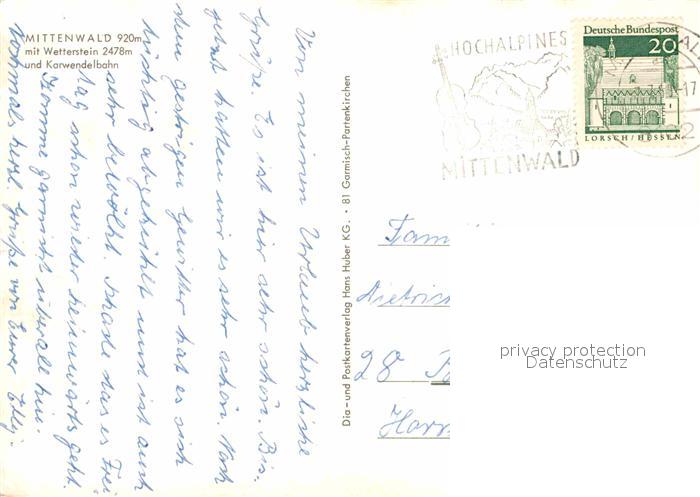 MITTENWALD 920m
mit Wetterstein 2478m
und Karwendelbahn
Von meinem Urlaub herzliche
Grüße. Es ist hier sehr schön. Bis-
jetzt hatten wir es sehr schön. Nach
dem gestrigen Gewitter hat es sich
tüchtig abgekühlt und ist auch
sehr bewölkt. Schade das es Frei
tag schon wieder heimwärts geht.
Komme garnicht überall hin.
Nochmals herzl. Grüße von Eurer Elly.
Dia- und Postkartenverlag Hans Huber KG. • 81 Garmisch-Partenkirchen
HOCHALPINES
MITTENWALD
Deutsche Bundespost
20
LORSCH/HESSEN
-17
Fam
Dietric
28
Harr
privacy protection
Datenschutz